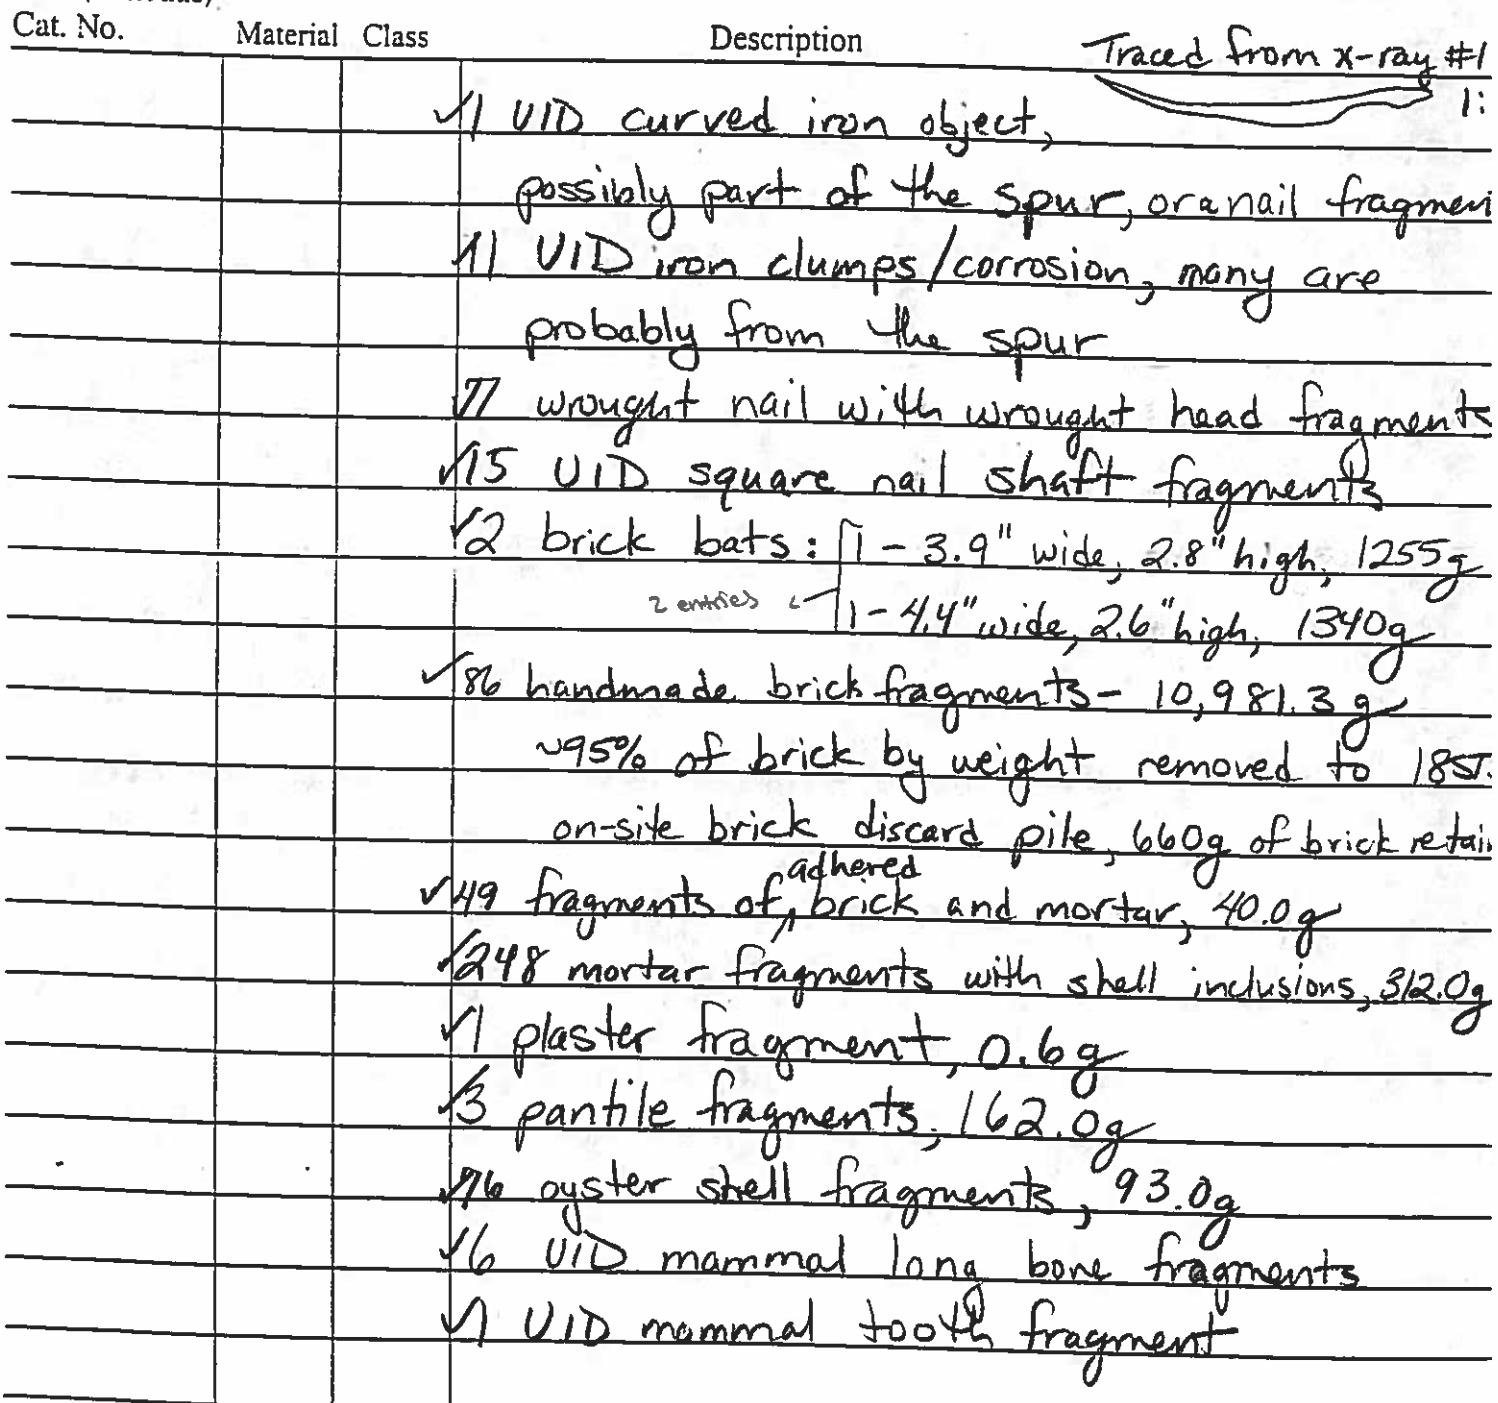 Cat. No. Material Class Description
Traced from x-ray #1
1:
✓1 UID curved iron object,
possibly part of the spur, or a nail fragmen
11 UID iron clumps/corrosion, many are
probably from the spur
wrought nail with wrought head fragments
✓15 UID square nail shaft fragments
✓2 brick bats: 1 - 3.9" wide, 2.8" high, 1255g
2 entries 1 - 4.4" wide, 2.6" high, 1340g
✓86 handmade brick fragments - 10,981.3 g
~95% of brick by weight removed to 18ST.
on-site brick discard pile, 660g of brick retain
✓49 fragments of adhered brick and mortar, 40.0g
✓248 mortar fragments with shell inclusions, 312.0g
✓1 plaster fragment, 0.6g
✓3 pantile fragments, 162.0g
✓76 oyster shell fragments, 93.0g
✓6 UID mammal long bone fragments
✓1 UID mammal tooth fragment